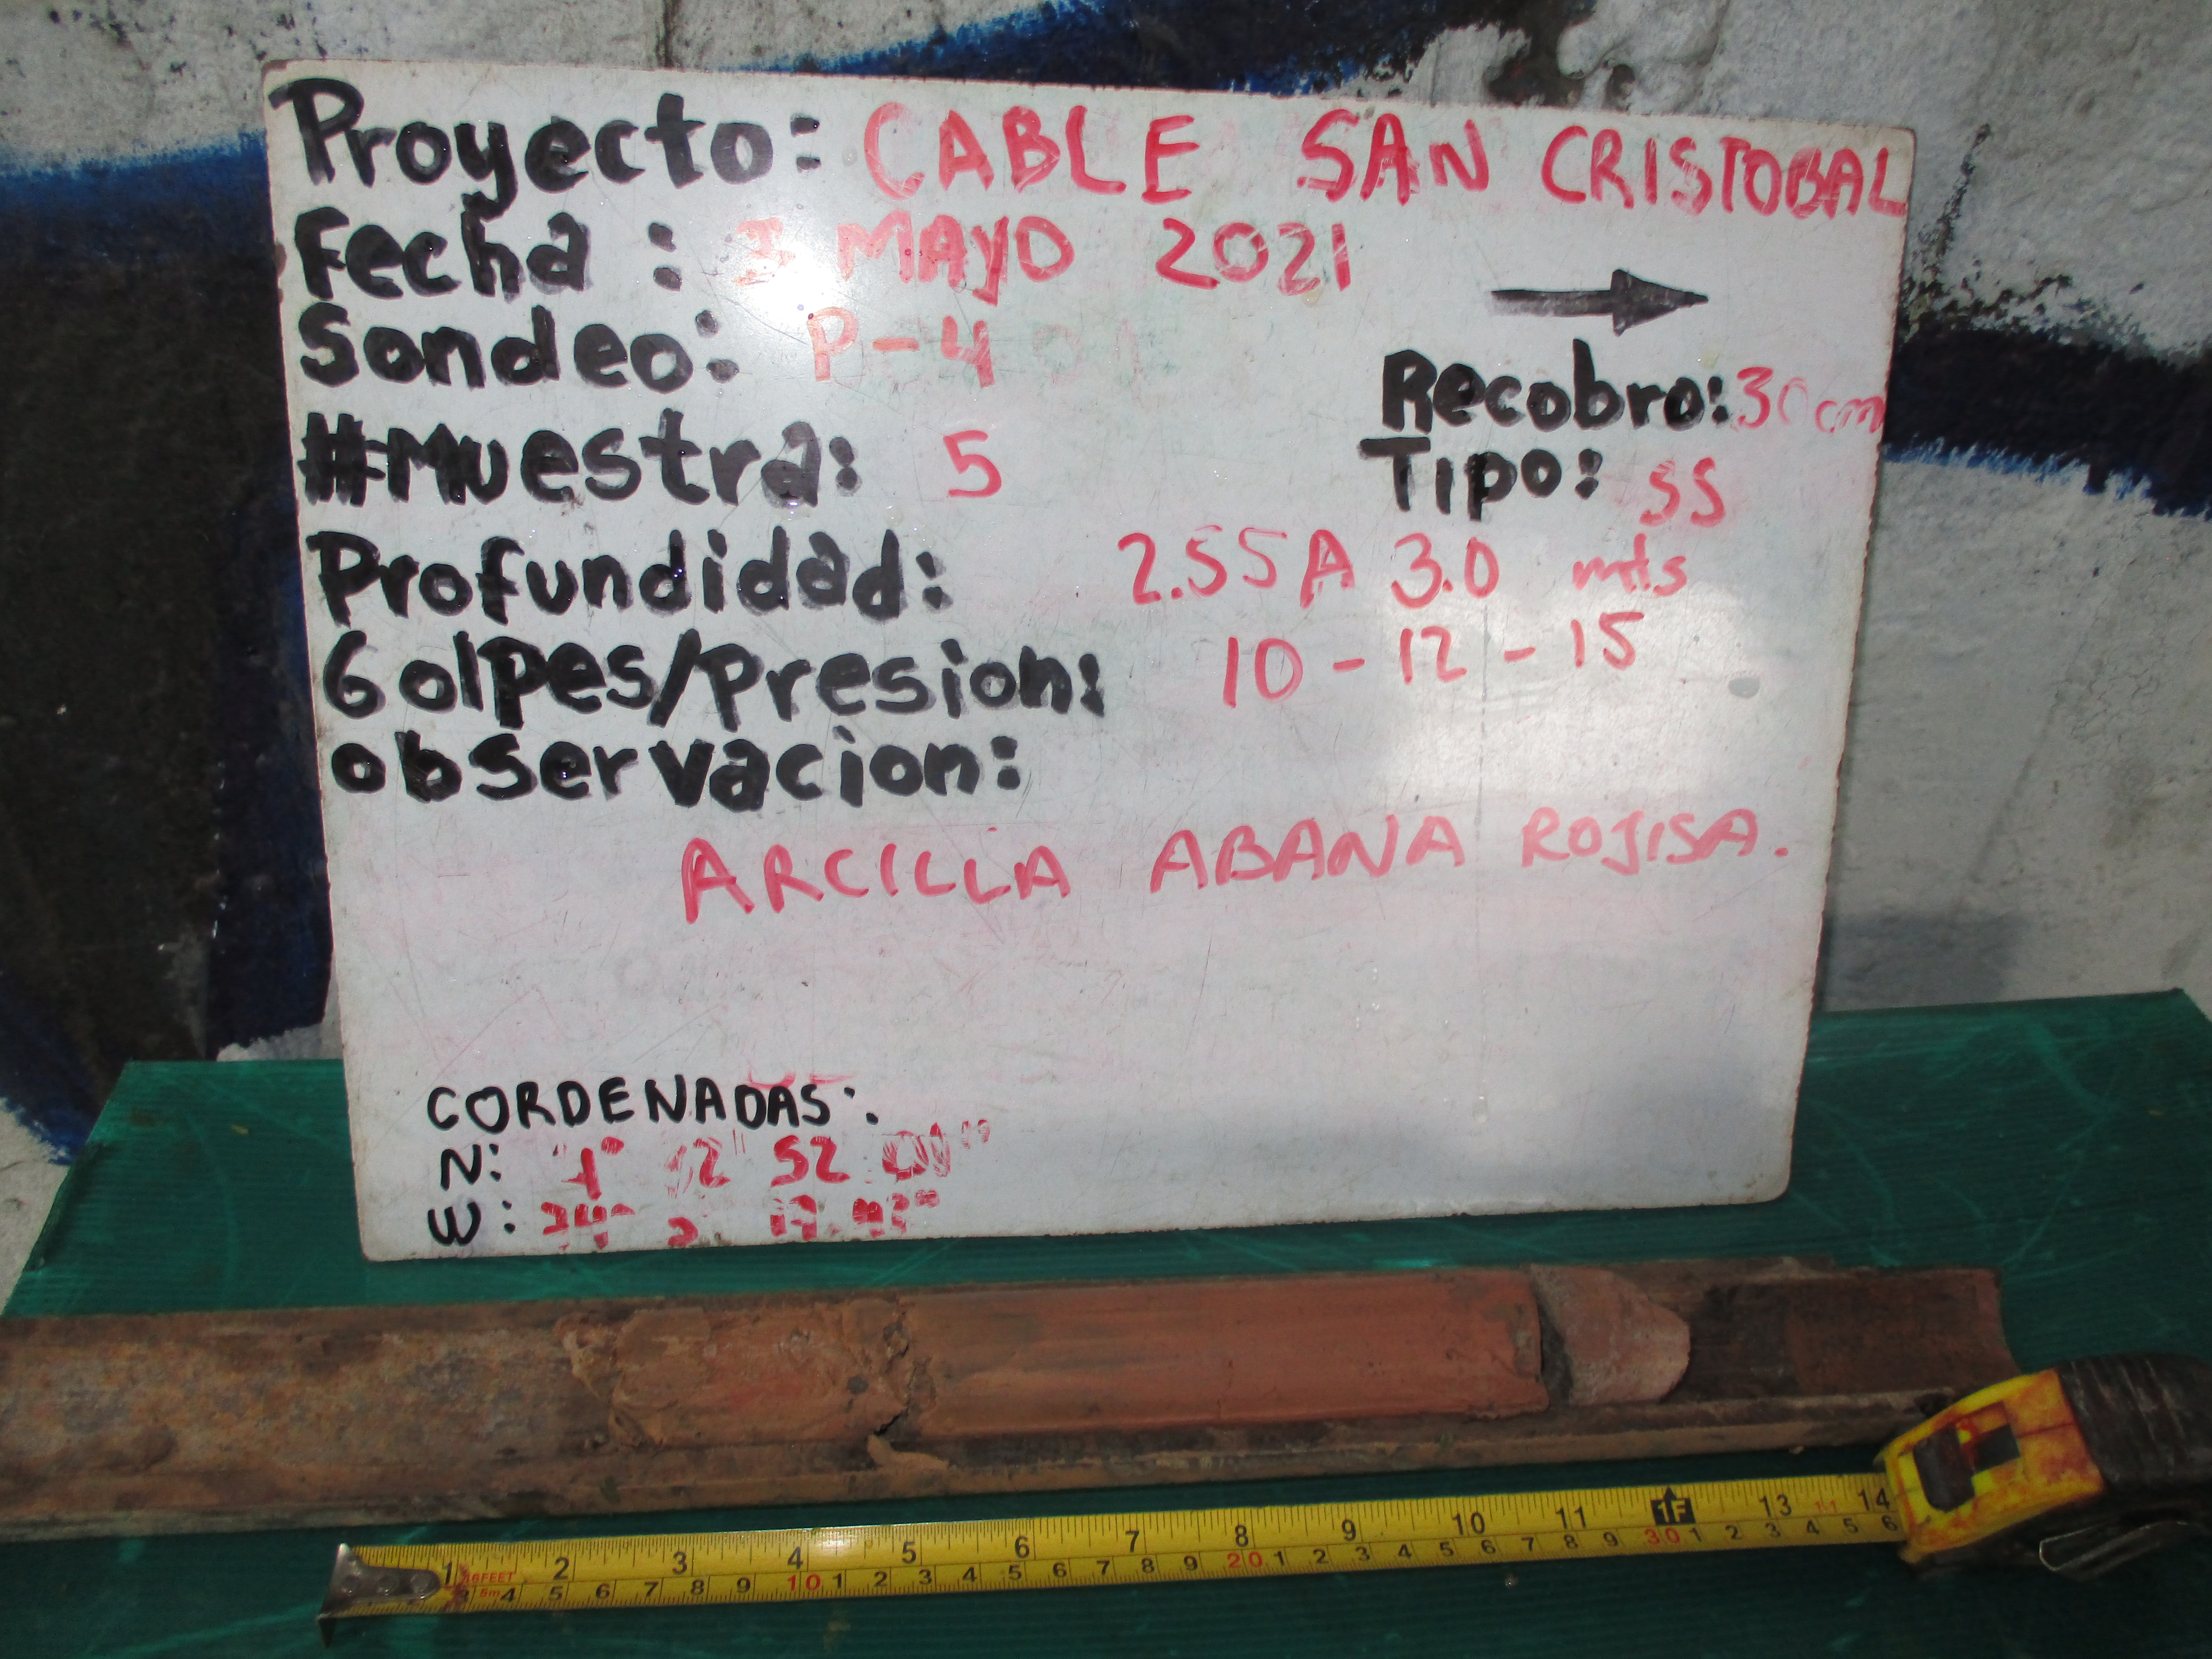 Proyecto: CABLE SAN CRISTOBAL
Fecha : MAYO 2021
Sondeo: P-4
Recobro: 30cm
#Muestra: 5
Tipo: SS
Profundidad: 2.55 A 3.0 mts
Golpes/Presion: 10 - 12 - 15
observacion:
ARCILLA ABANA ROJISA.
CORDENADAS:
N: 52
W:
1 2 3 4 5 6 7 8 9 10 11 1F 13 14
16FEET
5m 4 5 6 7 8 9 10 1 2 3 4 5 6 7 8 9 20 1 2 3 4 5 6 7 8 9 30 1 2 3 4 5 6